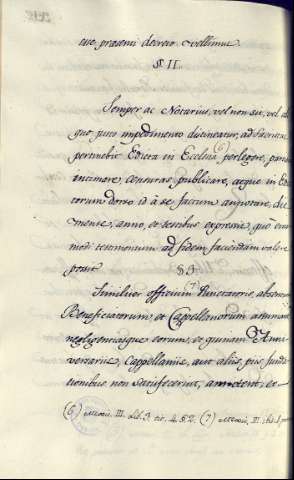 tue praesenti decreto vellimus.
§ II.
Semper ac Notarius, vel non sit, vel ali
quo justo impedimento detineatur, ad Sacristam
pertinebit Edicta in Ecclesia (6) perlegere,
intimare, censuras publicare, atque in Edic
torum dorso id à se factum annotare, die
mense, anno, et testibus expressis, quò
modi testimonium ad fidem faciendam vale
possit.
§ 3.
Similiter officium (7) Punctatoris, absentias
Beneficiatorum, et Cappellanorum
negligentiasque eorum, et quinam Anni
versariis, Cappellaniis, aut aliis, piis funda
tionibus non satisfecerint,
(6) Mexic. III. Lib. 3. tit. 4. § 2. (7) Mexic. III. lib. 1.